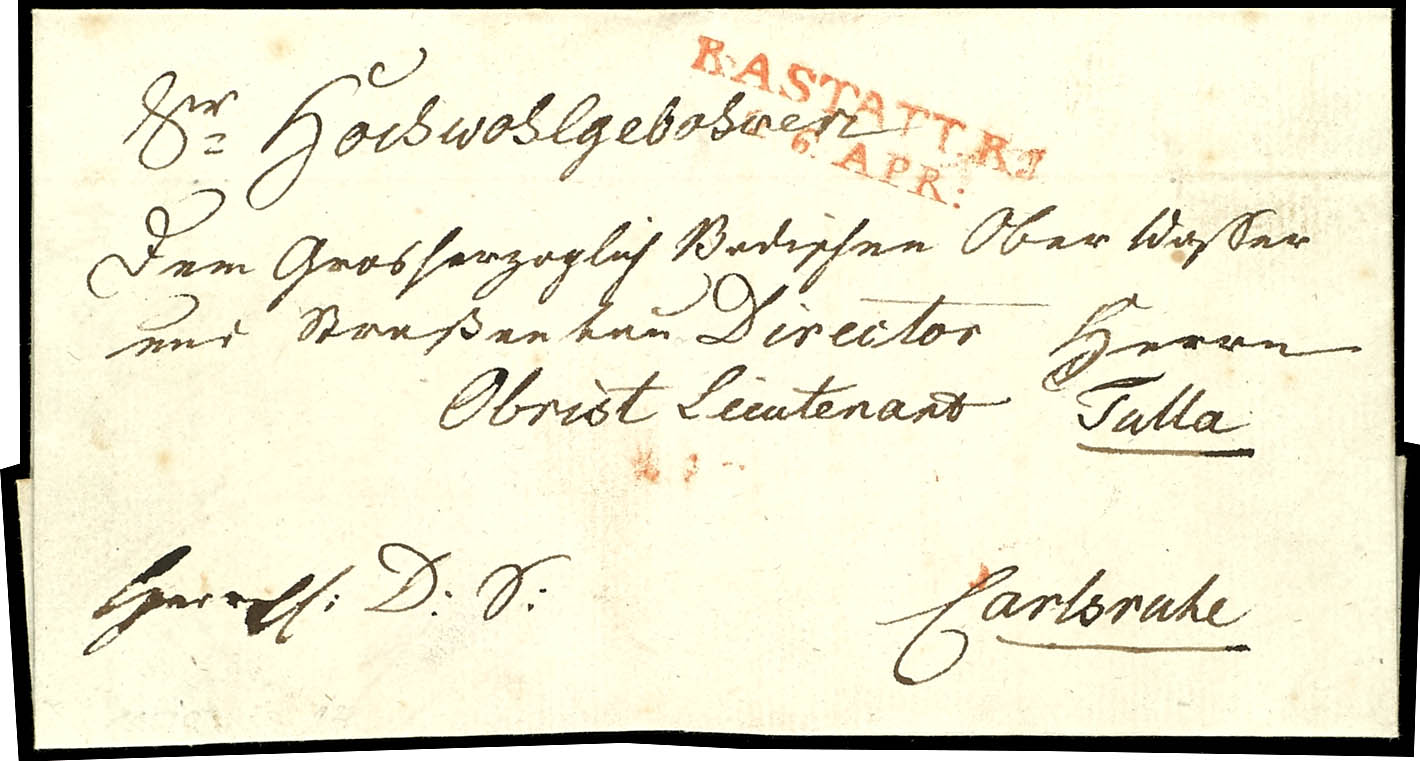 RASTATT.R.1
6. APR:
Sr Hochwohlgebohren
Dem Grosherzoglich Badischen Ober Wasser
und Straßenbau Director Herrn
Obrist Lieutenant Tulla
D: S:
Carlsruhe